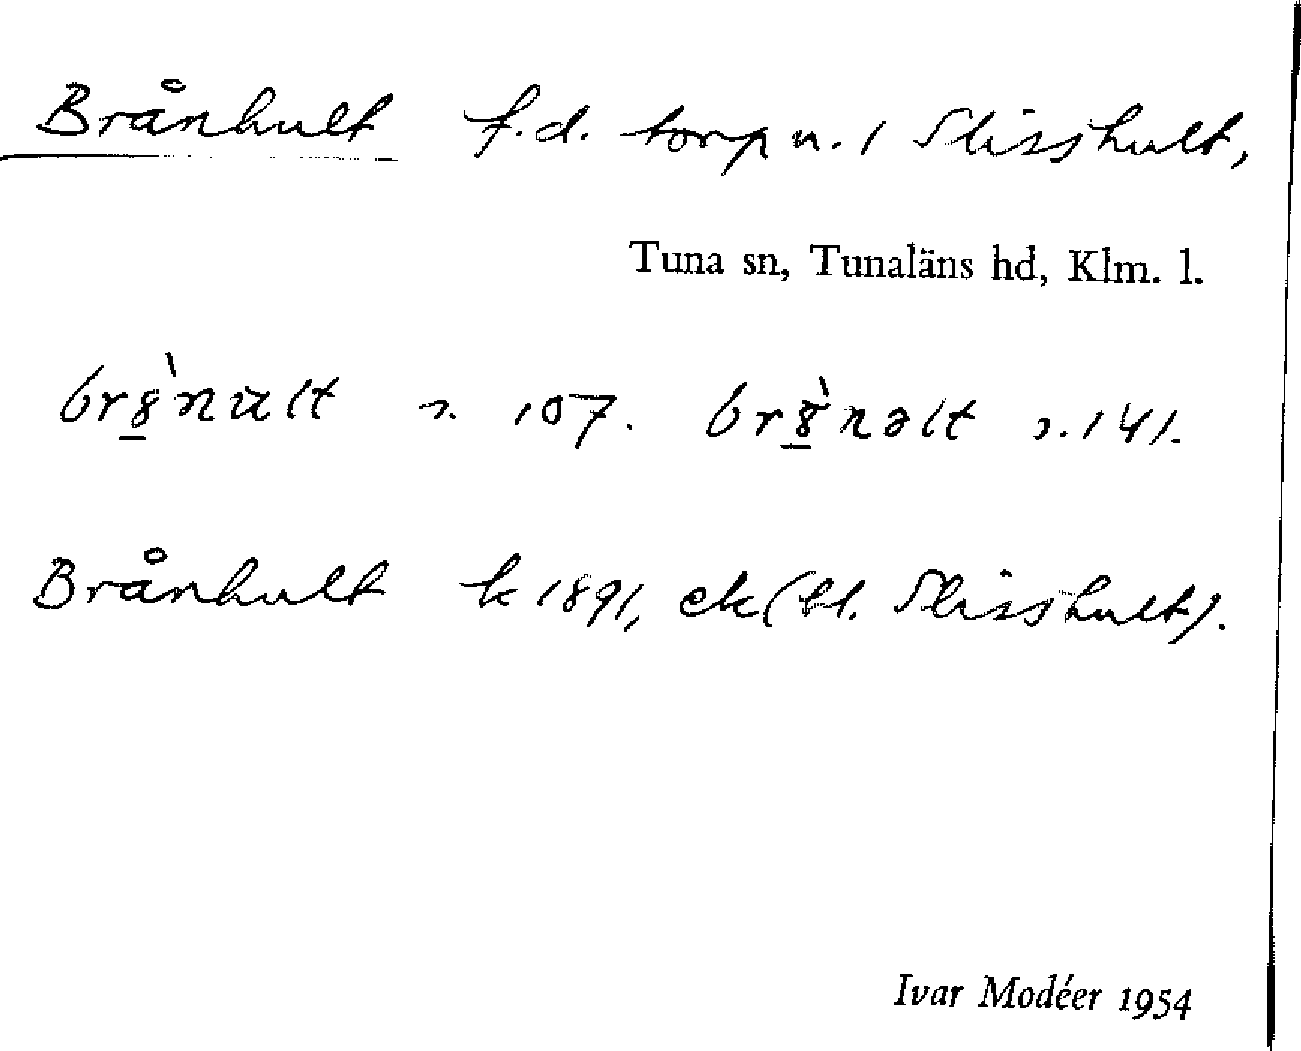 Brånhult f.d. torp u. 1 Slisshult,
Tuna sn, Tunaläns hd, Klm. l.
s. 107. s. 141.
Brånhult k 1891, ek (bl. Slisshult).
Ivar Modéer 1954